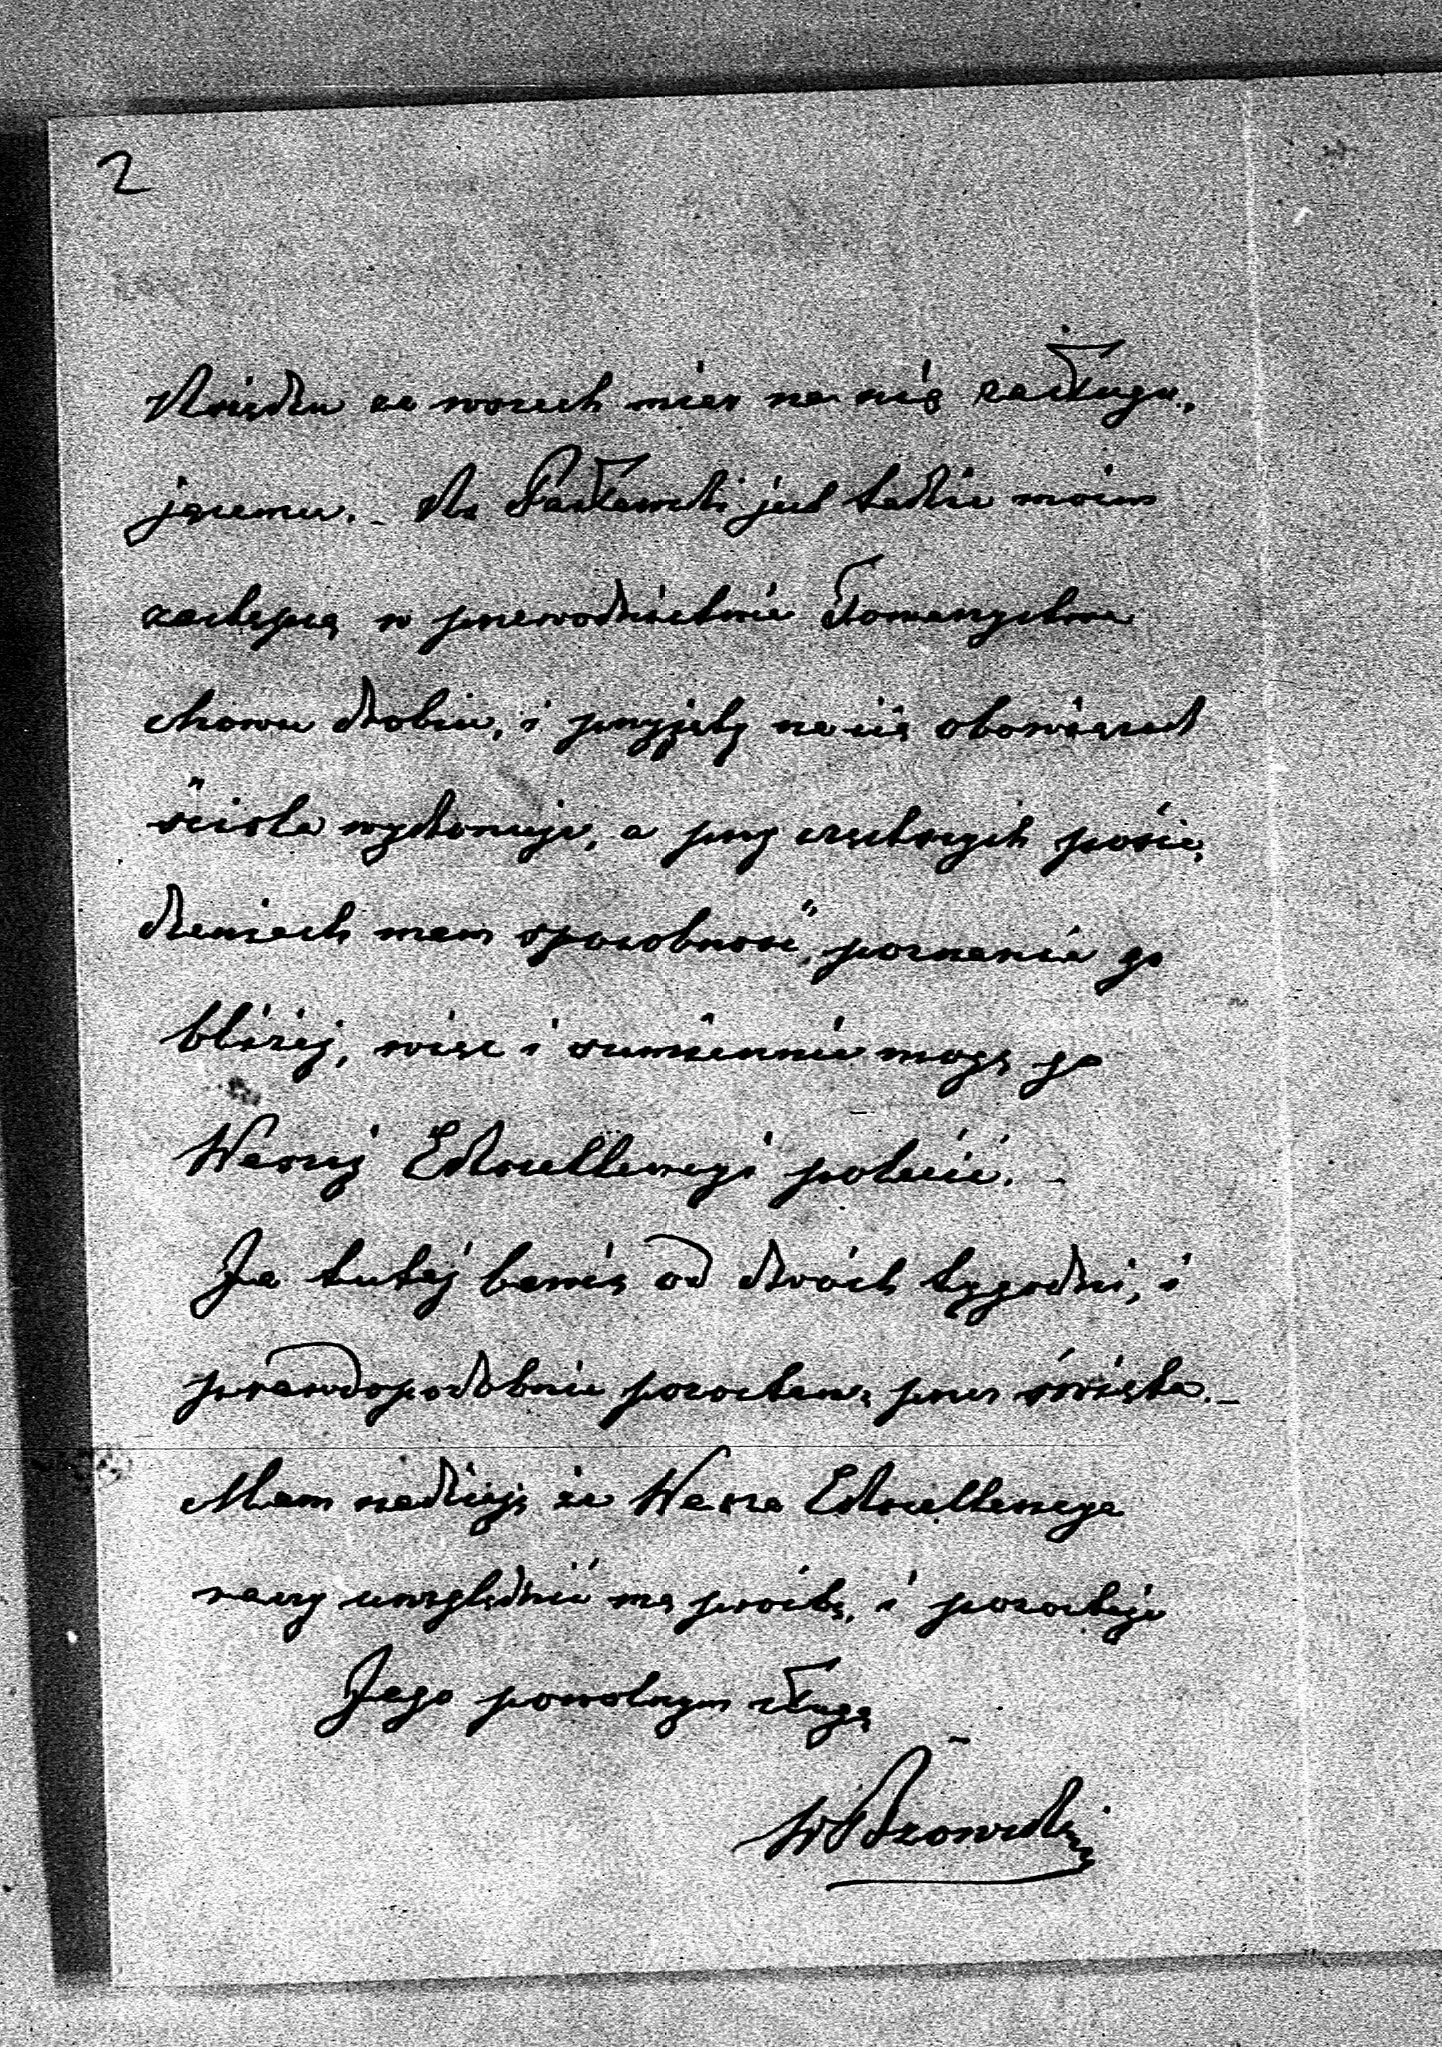 2
Księdzu ze wszech miar na nią zasługu,
jącemu. – Ks. Pawłowski jest także moim
zastępcą w przewodnictwie Towarzystwa
chowu drobiu, i przyjęty na się obowiązek
ściśle wykonuje, a przy częstszych posie,
dzeniach mam sposobność, poznania go
bliżej, więc i sumiennie mogę go
Waszej Ekscellencyi polecić. –
Ja tutaj bawię od dwóch tygodni, i
prawdopodobnie pozostanę przez święta. –
Mam nadzieję że Wasza Ekscellencya
raczy uwzględnić mą prośbę, i pozostaję
Jego powolnym sługą